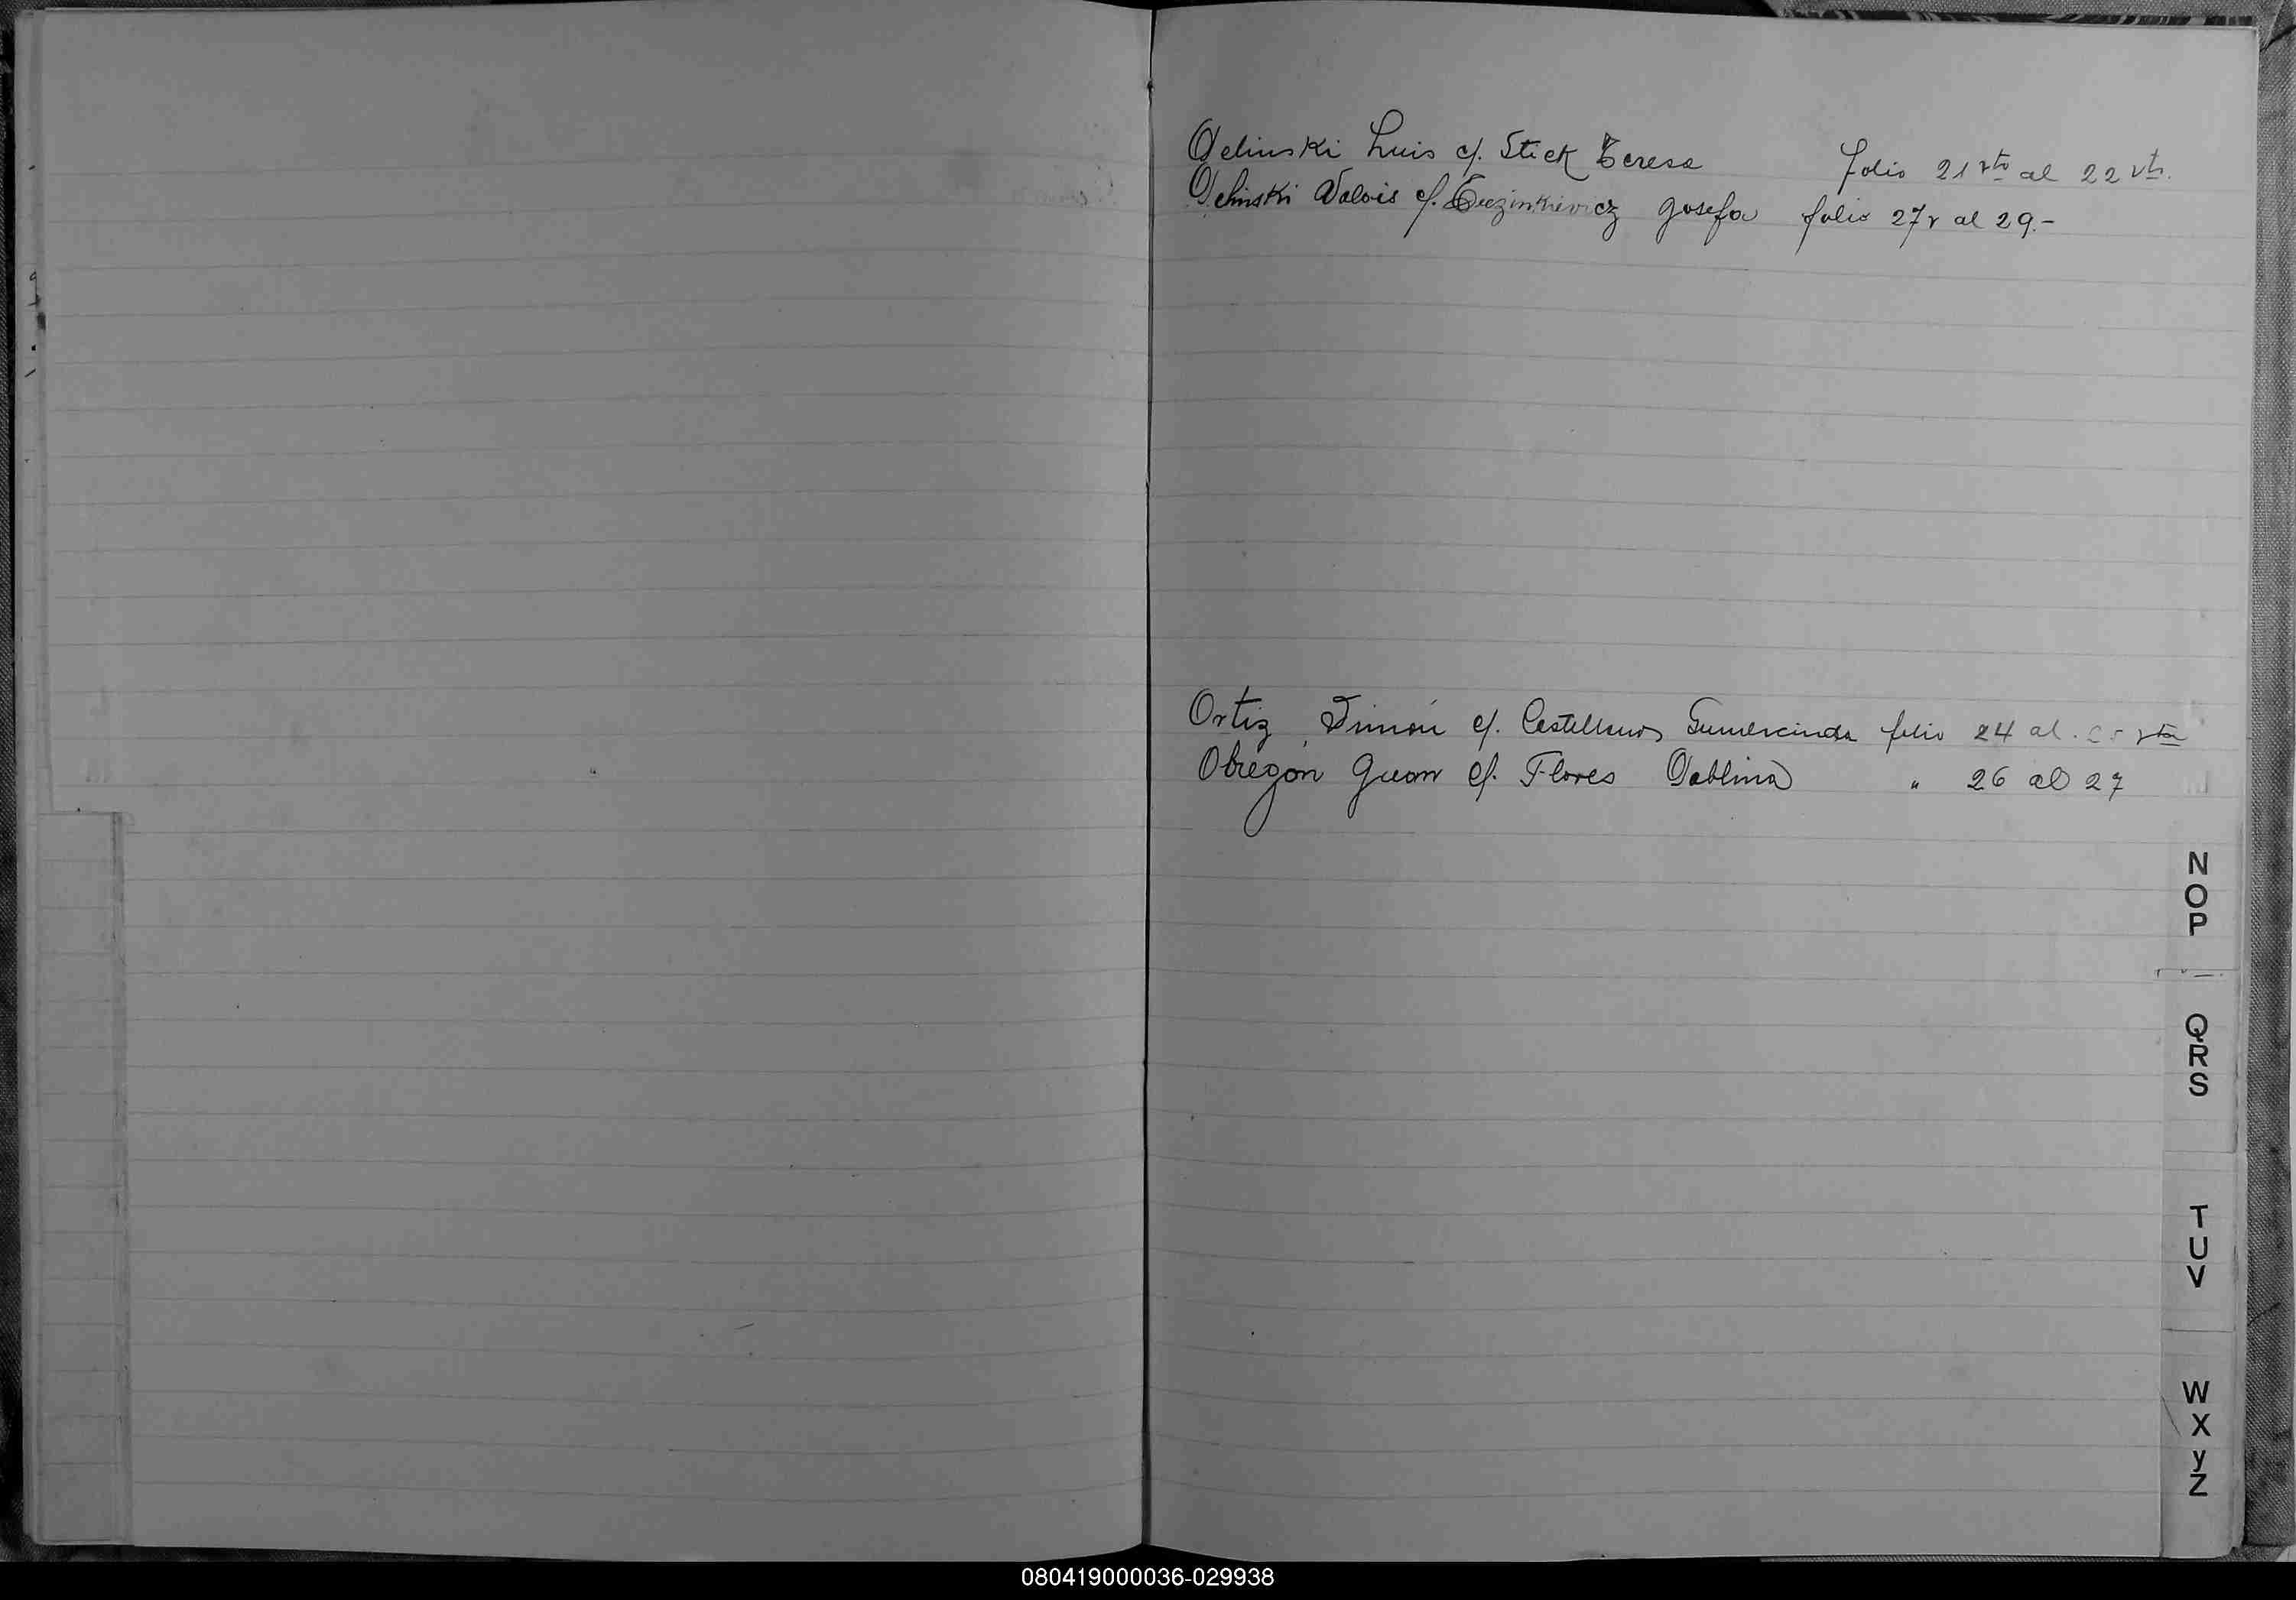 Delinski Luis c/. Stick Teresa folio 21 vto al 22 vto.
Delinski Valois c/. josefa folio 27v al 29.-
Ortiz, Simón c/. Castellanos Gumercinda folio 24 al. 25 vta
Obregon Juan c/. Flores " 26 al 27
N
O
P
Q
R
S
T
U
V
W
X
y
Z
080419000036-029938